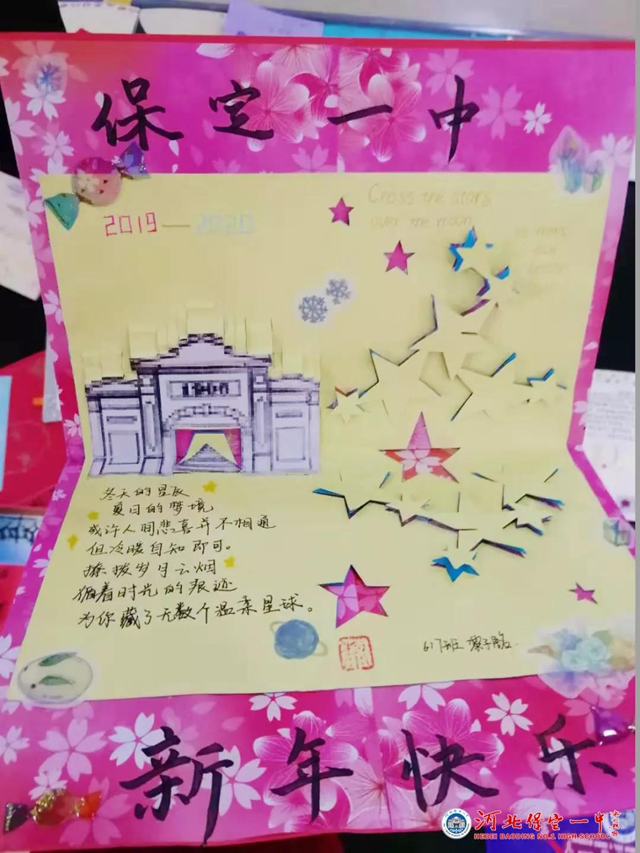 保定一中
2019—2020
Cross the stars
over the moon
冬天的星辰
夏日的梦境
或许人间悲喜并不相通
但冷暖自知即可。
撩拨岁月云烟
循着时光的痕迹
为你藏了无数个温柔星球。
617班
新年快乐
河北保定一中
HEBEI BAODING NO.1 HIGH SCHOOL